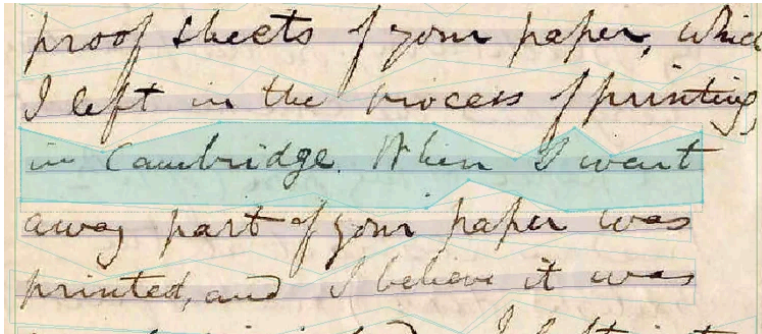 proof sheets of your paper, which
I left in the process of printing,
in Cambridge. When I went
away part of your paper was
printed, and I believe it was